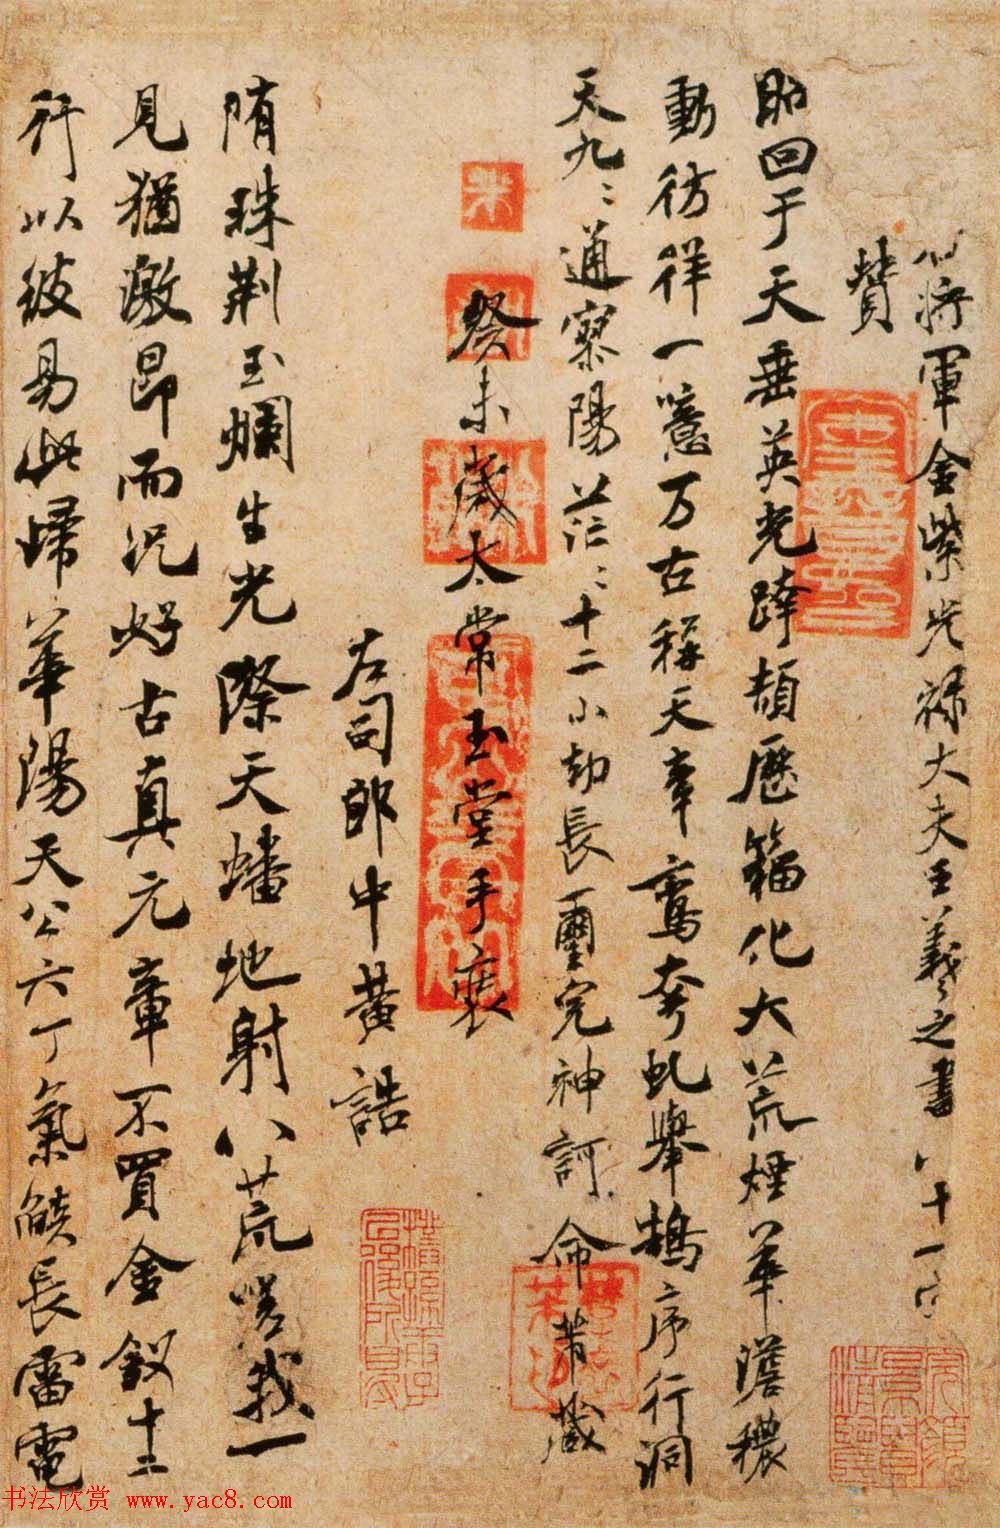 右將軍金紫光祿大夫王羲之書八十一字
贊
昭回于天垂英光跨頡歷籀化大荒煙華澹穠
動彷徉一噫万古稱天章鸞夸虬舉鵠序行洞
天九〻通寥陽茫〻十二小劫長璽完神訶命芾藏
癸未歲太常玉堂手裝
左司郎中黃誥
隋珠荊玉爛生光際天蟠地射八荒嗟我一
見猶激昂而況好古真元章不買金釵十二
行以彼易此歸華陽天公六丁氣燄長雷電
书法欣赏 www.yac8.com